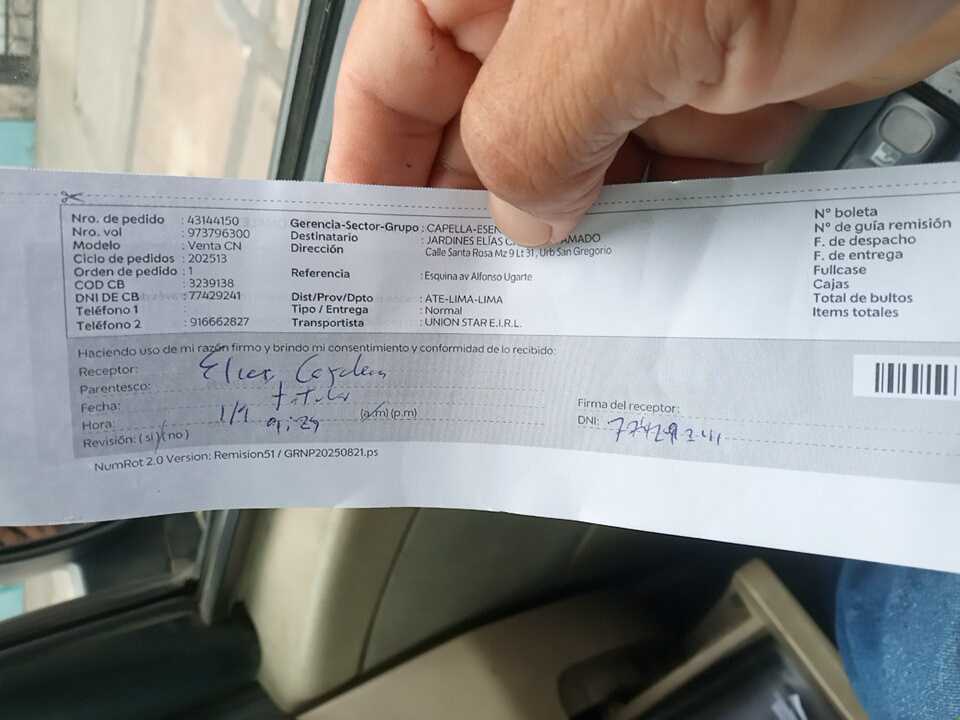 Nro. de pedido : 43144150
Nro. vol : 973796300
Modelo : Venta CN
Ciclo de pedidos : 202513
Orden de pedido : 1
COD CB : 3239138
DNI DE CB : 77429241
Teléfono 1 :
Teléfono 2 : 916662827
Gerencia-Sector-Grupo : CAPELLA-ESEN
Destinatario : JARDINES ELÍAS C AMADO
Dirección Calle Santa Rosa Mz 9 Lt 31 , Urb San Gregorio
Referencia : Esquina av Alfonso Ugarte
Dist/Prov/Dpto : ATE-LIMA-LIMA
Tipo / Entrega : Normal
Transportista : UNION STAR E.I.R.L.
N° boleta
N° de guía remisión
F. de despacho
F. de entrega
Fullcase
Cajas
Total de bultos
Items totales
Haciendo uso de mi razón firmo y brindo mi consentimiento y conformidad de lo recibido:
Receptor:
Parentesco: titular
Fecha: 1/9
Hora: (a.m) (p.m)
Revisión: ( sí ) ( no )
Firma del receptor:
DNI: 77429241
NumRot 2.0 Version: Remision51 / GRNP20250821.ps